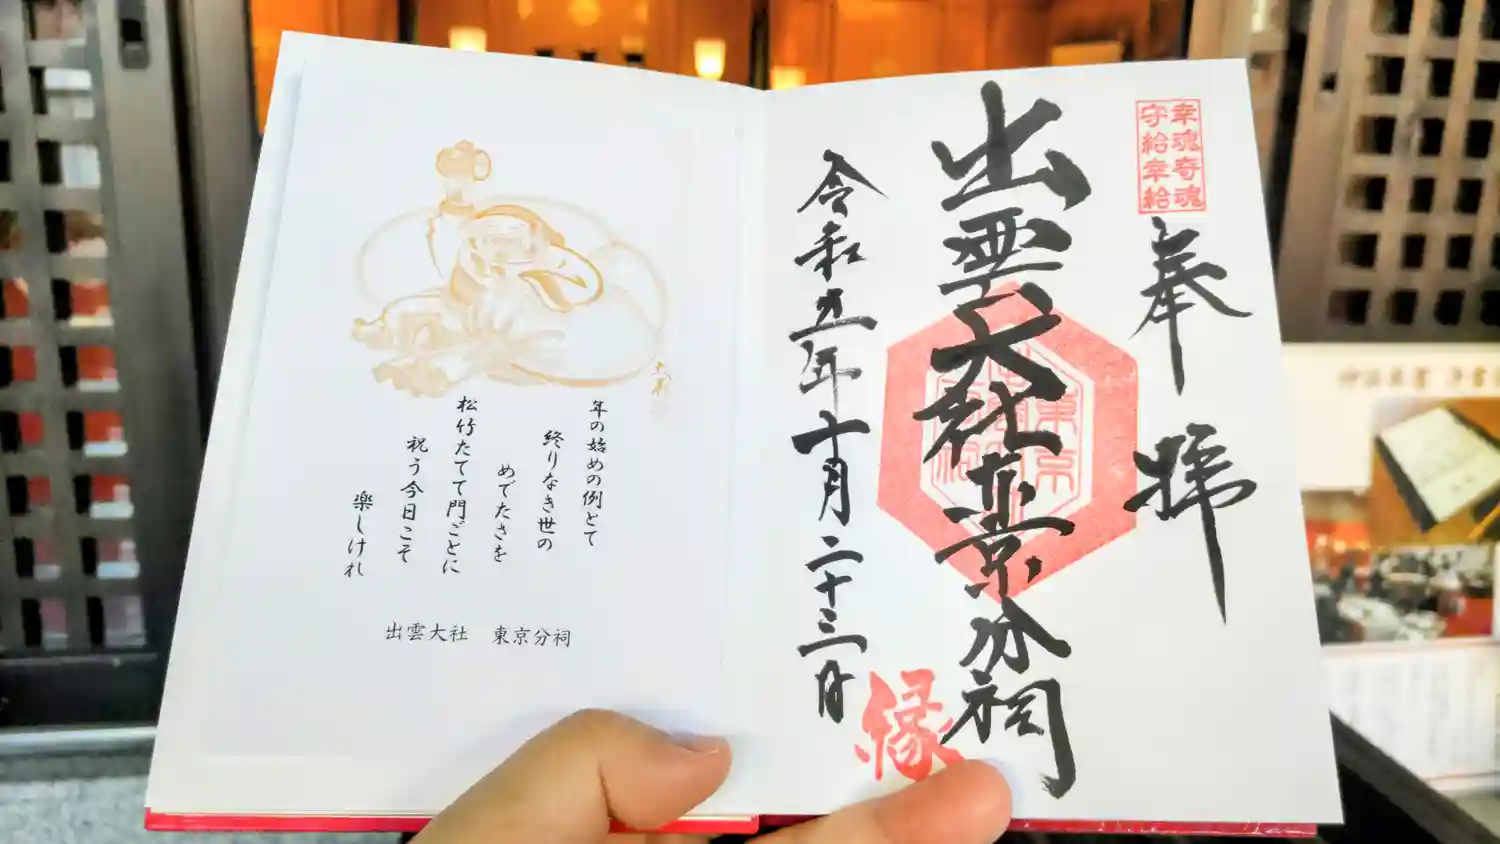 幸魂奇魂
守給幸給
奉拝
出雲大社東京分祠
令和五年十月二十三日
縁
年の始めの例とて
終りなき世の
めでたさを
松竹たてて門ごとに
祝う今日こそ
楽しけれ
出雲大社 東京分祠